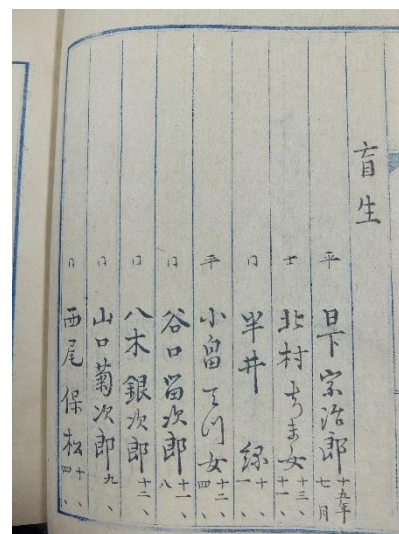 盲生
平 日下宗治郎 十五年七月
士 北村ちま女 十三、十一、
〃 半井緑 十、一、
平 小畠てつ女 十二、四、
〃 谷口留次郎 十一、八
〃 八木銀次郎 十二、、
〃 山口菊次郎 九、、
〃 西尾保松 十、四、